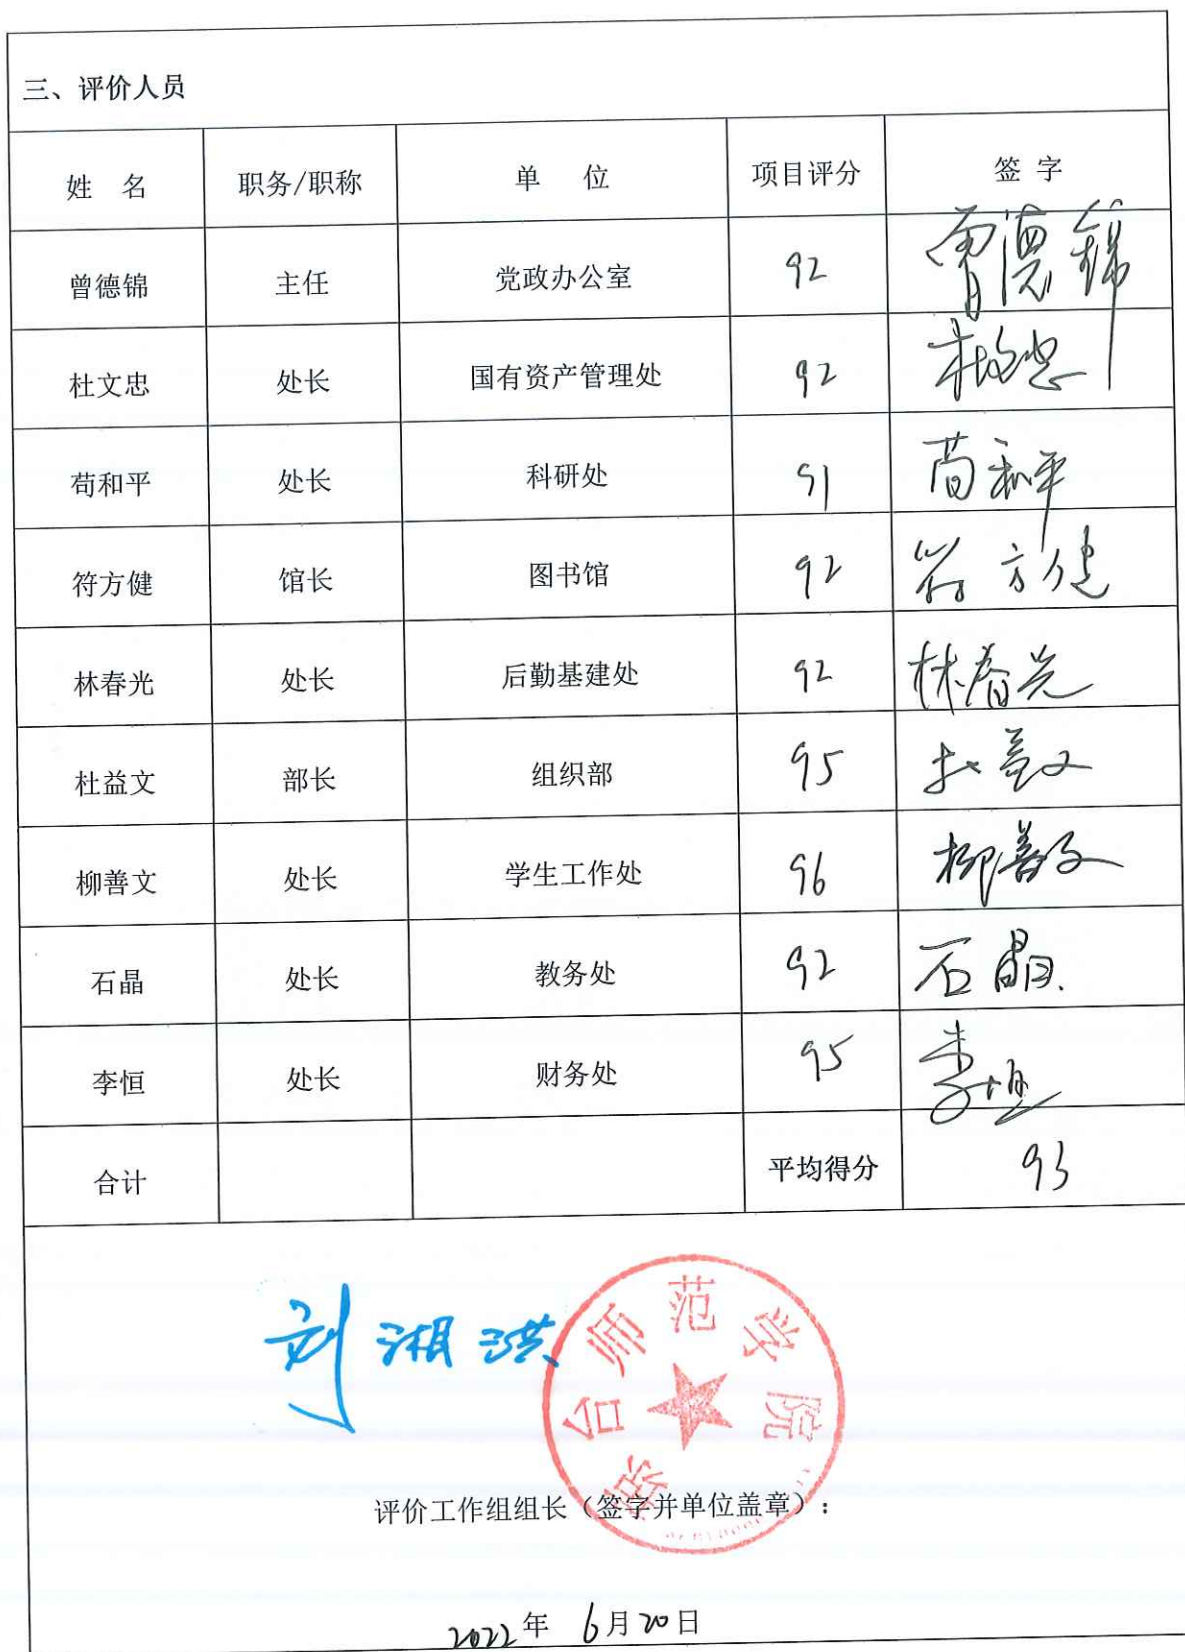 三、评价人员
姓 名 职务/职称 单 位 项目评分 签 字
曾德锦 主任 党政办公室 92 曾德锦
杜文忠 处长 国有资产管理处 92 杜文忠
苟和平 处长 科研处 91 苟和平
符方健 馆长 图书馆 92 符方健
林春光 处长 后勤基建处 92 林春光
杜益文 部长 组织部 95 杜益文
柳善文 处长 学生工作处 96 柳善文
石晶 处长 教务处 92 石晶
李恒 处长 财务处 95 李恒
合计 平均得分 93
刘湘洪
琼台师范学院
评价工作组组长（签字并单位盖章）：
2022年 6月20日